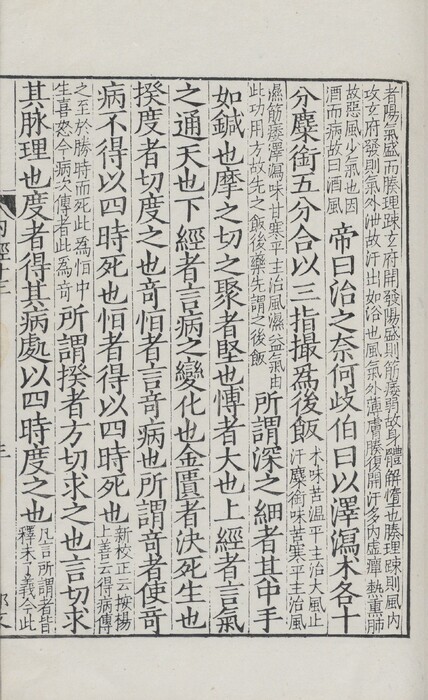 者陽氣盛而腠理踈玄府開發陽盛則筋痿弱故身體解惰也腠理踈則風內
攻玄府發則氣外泄故汗出如浴也風氣外薄膚腠復開汗多內虛癉熱熏肺
故惡風少氣也因
酒而病故曰酒風
帝曰治之奈何歧伯曰以澤瀉术各十
分麋銜五分合以三指撮為後飯
术味苦溫平主治大風止
汗麋銜味苦寒平主治風
濕筋痿澤瀉味甘寒平主治風濕益氣由
此功用方故先之飯後藥先謂之後飯
所謂深之細者其中手
如鍼也摩之切之聚者堅也慱者大也上經者言氣
之通天也下經者言病之變化也金匱者決死生也
揆度者切度之也奇恒者言奇病也所謂奇者使奇
病不得以四時死也恒者得以四時死也
新校正云按楊
上善云得病傳
之至於勝時而死此為恒中
生喜怒令病次傳者此為奇
所謂揆者方切求之也言切求
其脉理也度者得其病處以四時度之也
凡言所謂者皆
釋未了義今此
內經十三